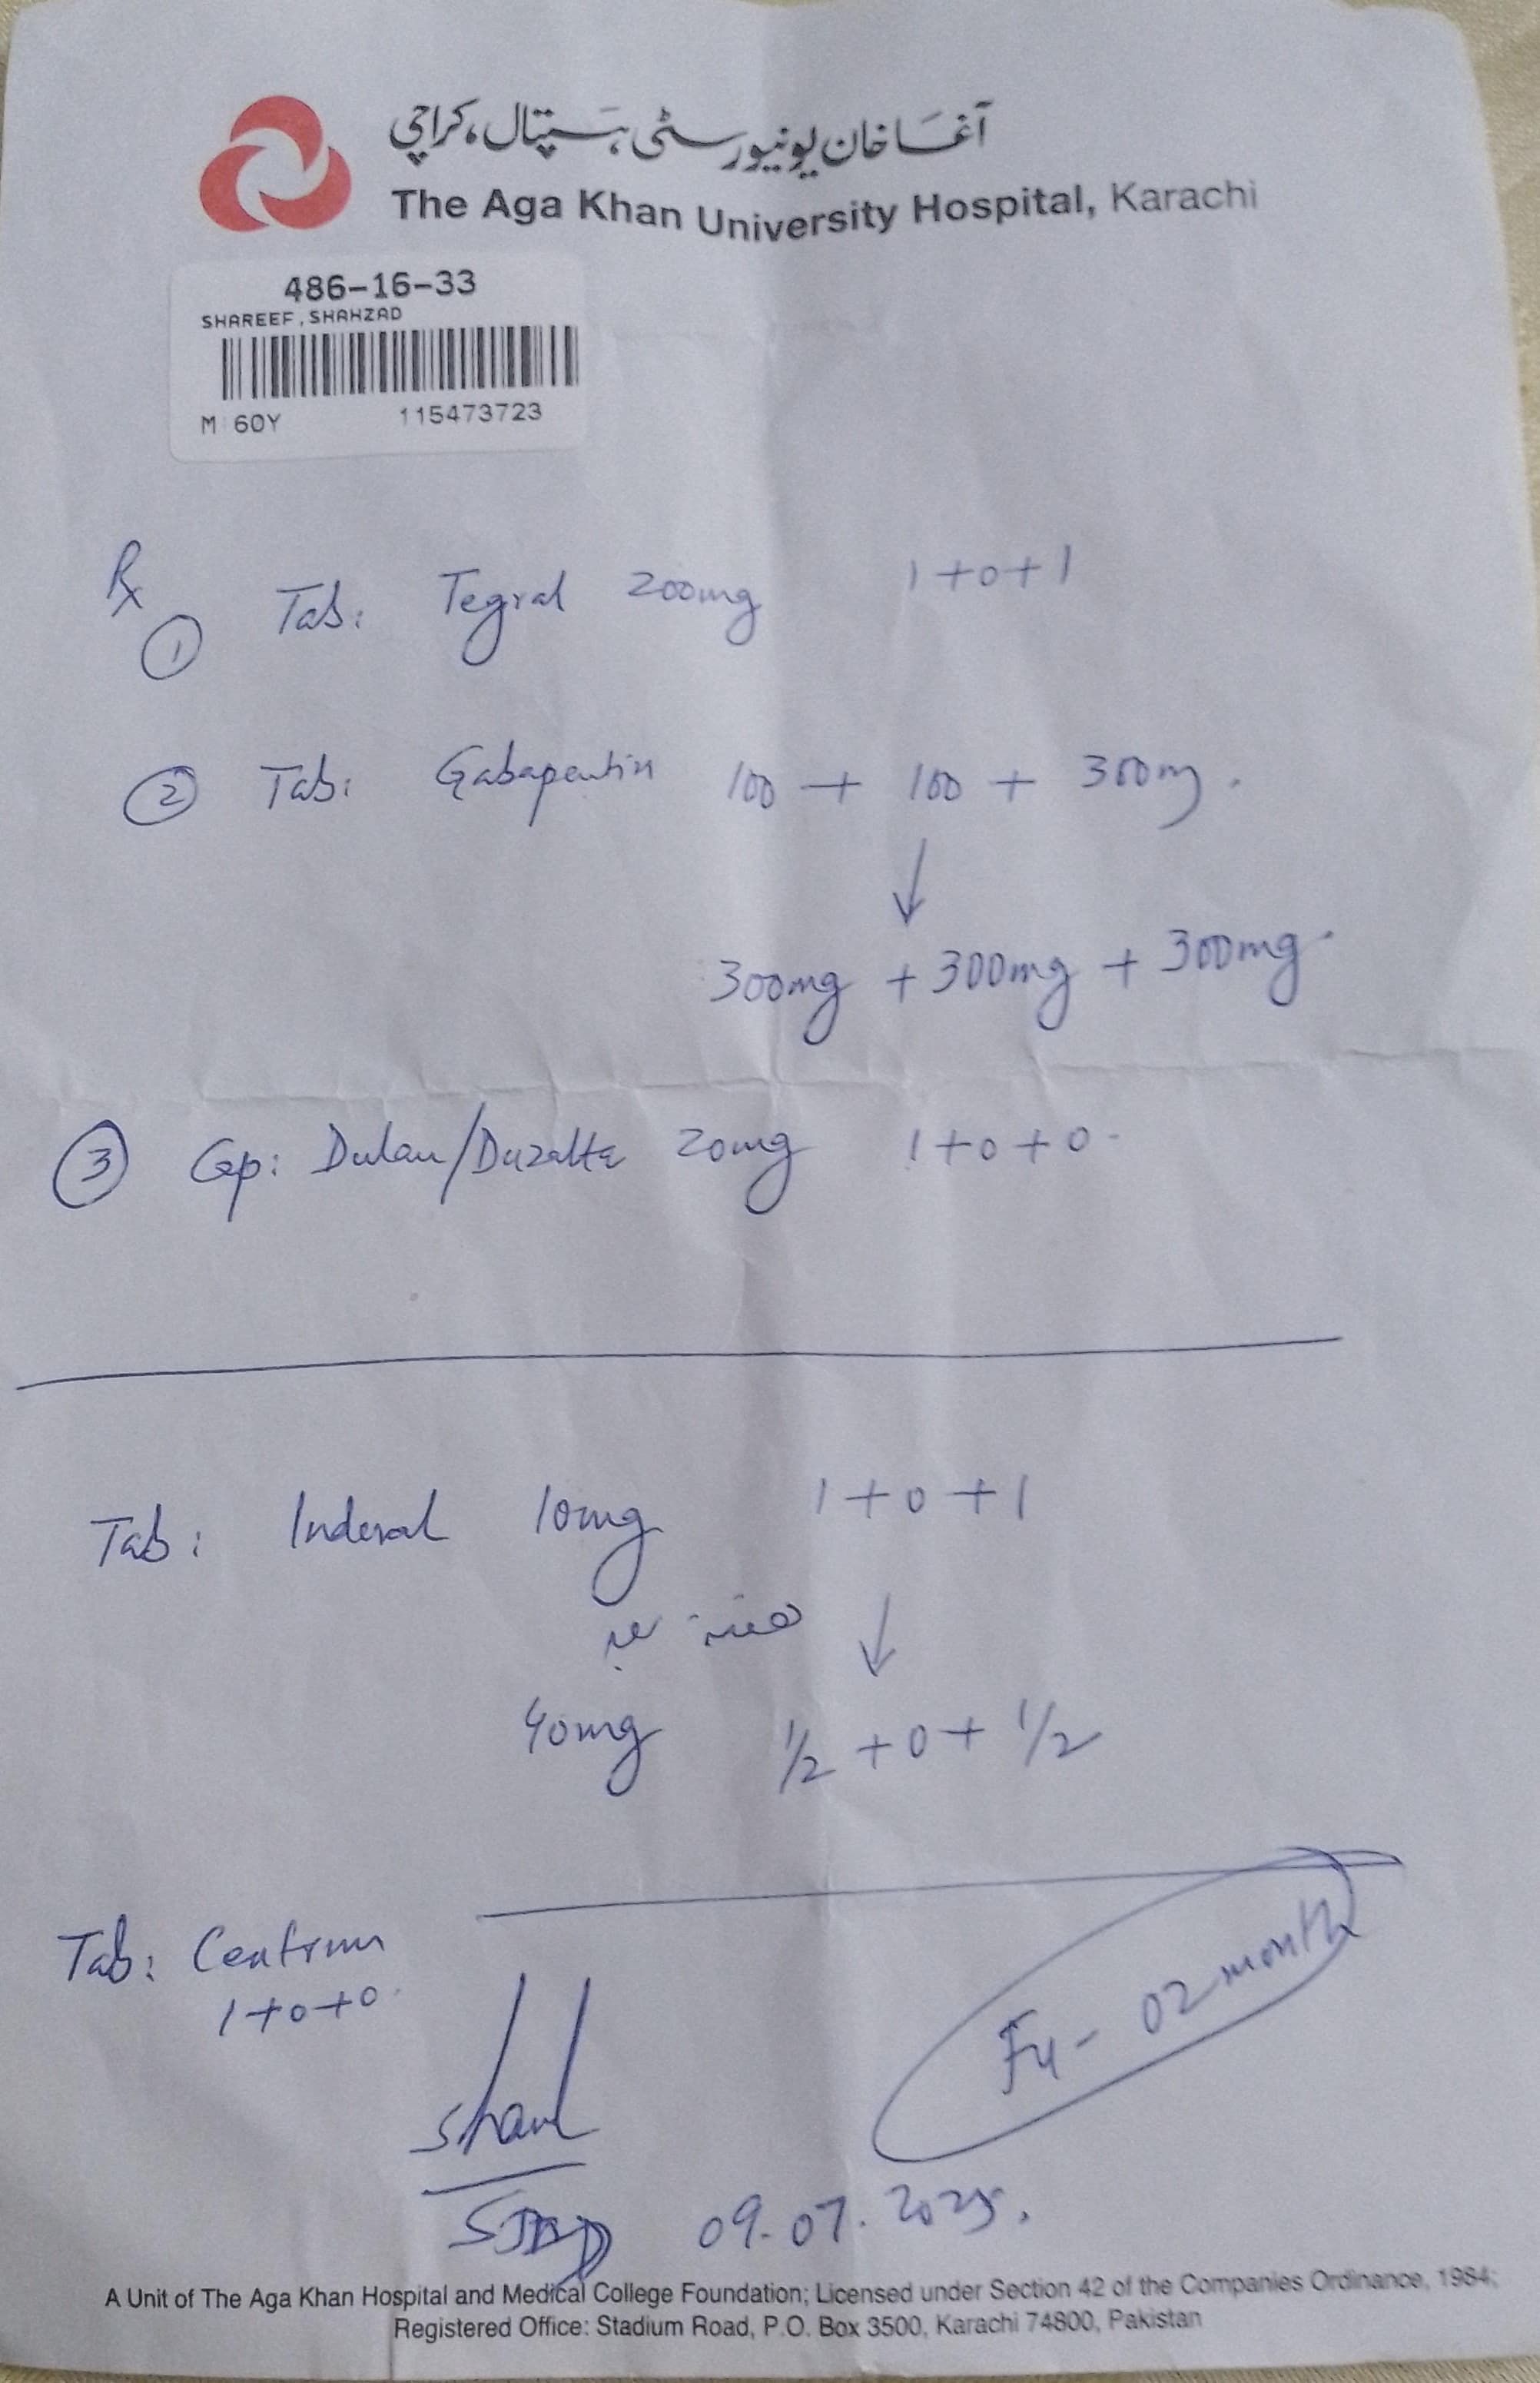 آغا خان یونیورسٹی ہسپتال، کراچی
The Aga Khan University Hospital, Karachi
486-16-33
SHAREEF, SHAHZAD
M 60Y 115473723
Rx
① Tab: Tegral 200mg 1+0+1
② Tab: Gabapentin 100 + 100 + 300mg.
↓
300mg + 300mg + 300mg.
③ Cap: Dulan/Duzalta 20mg 1+0+0
Tab: Inderal 10mg 1+0+1
ہفتہ بعد ↓
40mg 1/2 +0+ 1/2
Tab: Centrum
1+0+0
Fu- 02 month
09.07.2025.
A Unit of The Aga Khan Hospital and Medical College Foundation; Licensed under Section 42 of the Companies Ordinance, 1984;
Registered Office: Stadium Road, P.O. Box 3500, Karachi 74800, Pakistan